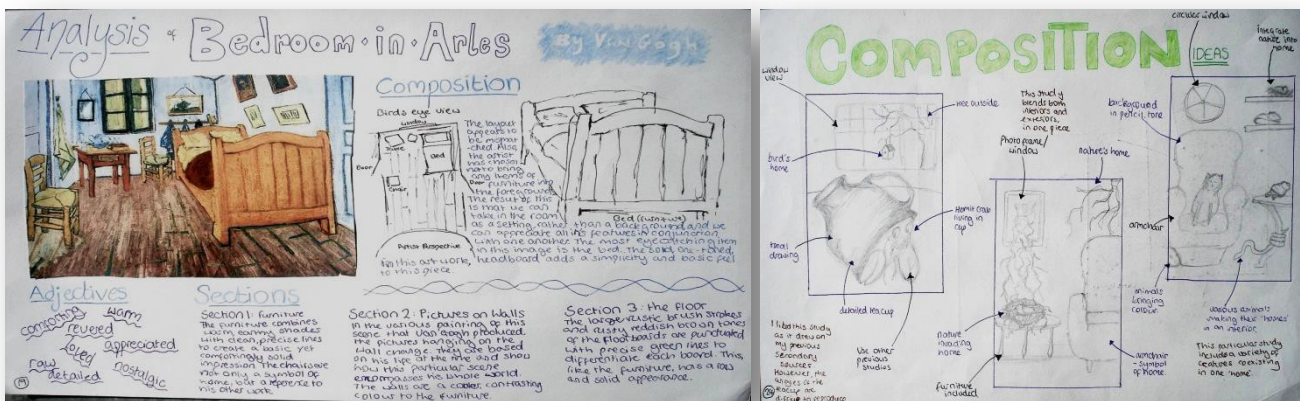 Analysis of Bedroom·in·Arles
By Van Gogh
Composition
Birds eye view
window
table
Bed
Door
chair
Door
Artist Perspective
The layout
appears to
be
Also,
the artist
has chosen
not to bring
any items of
furniture into
the foreground.
The result of
this is that we can
take in the room
as a setting, rather than a background and we
can appreciate all its features in conjunction
with one another. The most eyecatching item
in this image is the bed. The solid, one-toned,
headboard adds a simplicity and basic feel
to this piece.
Bed (furniture)
Adjectives
comforting
warm
revered
loved
appreciated
raw
detailed
nostalgic
Sections
Section 1: Furniture
The furniture combines
warm, earthy shades
with clean, precise lines
to create a basic yet
comfortingly solid
impression. The chairs are
not only a symbol of
home, but a reference to
his other work.
Section 2: Pictures on Walls
In the various painting of this
scene that Van Gogh produced,
the pictures hanging on the
wall change. They are based
on his life at the time and show
how this particular scene
encompasses his whole world.
The walls are a cooler, contrasting
colour to the furniture.
Section 3: The Floor
The large rustic brush strokes
and rusty reddish brown tones
of the floorboards are punctuated
with precise green lines to
differentiate each board. This,
like the furniture, has a raw
and solid appearance.
COMPOSITION
IDEAS
window
view
bird's
home
tonal
drawing
tree outside
Hermit Crab
living in
cup
detailed teacup
Use other
previous
studies
I like this study
as it draws on
my previous
secondary
sources.
However, the
angles of the
teacup are
difficult to reproduce
This study
blends both
interiors and
exteriors,
in one piece
Photo frame/
window
nature's home
nature
invading
home
furniture
included
armchair
- symbol
of home
circular window
integrate
nature into
home
background
in pencil tone
armchair
animals
bringing
colour
various animals
making their 'homes'
in an interior.
This particular study
includes a variety of
creatures coexisting
in one 'home'